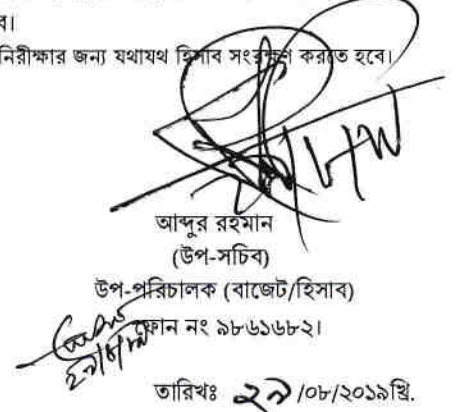 ব।
নিরীক্ষার জন্য যথাযথ হিসাব সংরক্ষণ করতে হবে।
আব্দুর রহমান
(উপ-সচিব)
উপ-পরিচালক (বাজেট/হিসাব)
ফোন নং ৯৮৬১৬৮২।
তারিখঃ ২৯/০৮/২০১৯খ্রি.